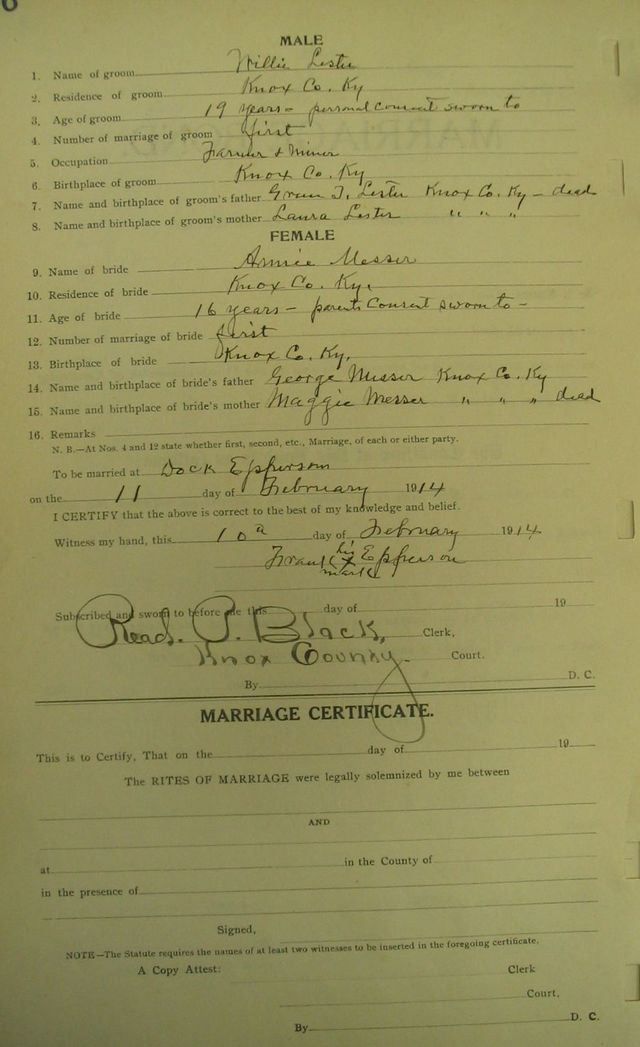 6
MALE
1. Name of groom Willie Lester
2. Residence of groom Knox Co. Ky
3. Age of groom 19 years - personal consent sworn to
4. Number of marriage of groom first
5. Occupation Farmer & Miner
6. Birthplace of groom Knox Co. Ky
7. Name and birthplace of groom's father T. Lester Knox Co. Ky - dead
8. Name and birthplace of groom's mother Laura Lester " " "
FEMALE
9. Name of bride Annie Messer
10. Residence of bride Knox Co. Ky.
11. Age of bride 16 years - parents Consent sworn to -
12. Number of marriage of bride first
13. Birthplace of bride Knox Co. Ky.
14. Name and birthplace of bride's father George Messer Knox Co. Ky
15. Name and birthplace of bride's mother Maggie Messer " " " dead
16. Remarks
N. B.—At Nos. 4 and 12 state whether first, second, etc., Marriage, of each or either party.
To be married at Dock Epperson
on the 11 day of February 1914
I CERTIFY that the above is correct to the best of my knowledge and belief.
Witness my hand, this 10 day of February 1914
his
Frank X Epperson
mark
Subscribed and sworn to before me this day of 19
Read. P. Black, Clerk,
Knox County Court.
By D. C.
MARRIAGE CERTIFICATE.
This is to Certify, That on the day of 19
The RITES OF MARRIAGE were legally solemnized by me between
AND
at in the County of
in the presence of
Signed,
NOTE—The Statute requires the names of at least two witnesses to be inserted in the foregoing certificate.
A Copy Attest: Clerk
Court,
By D. C.